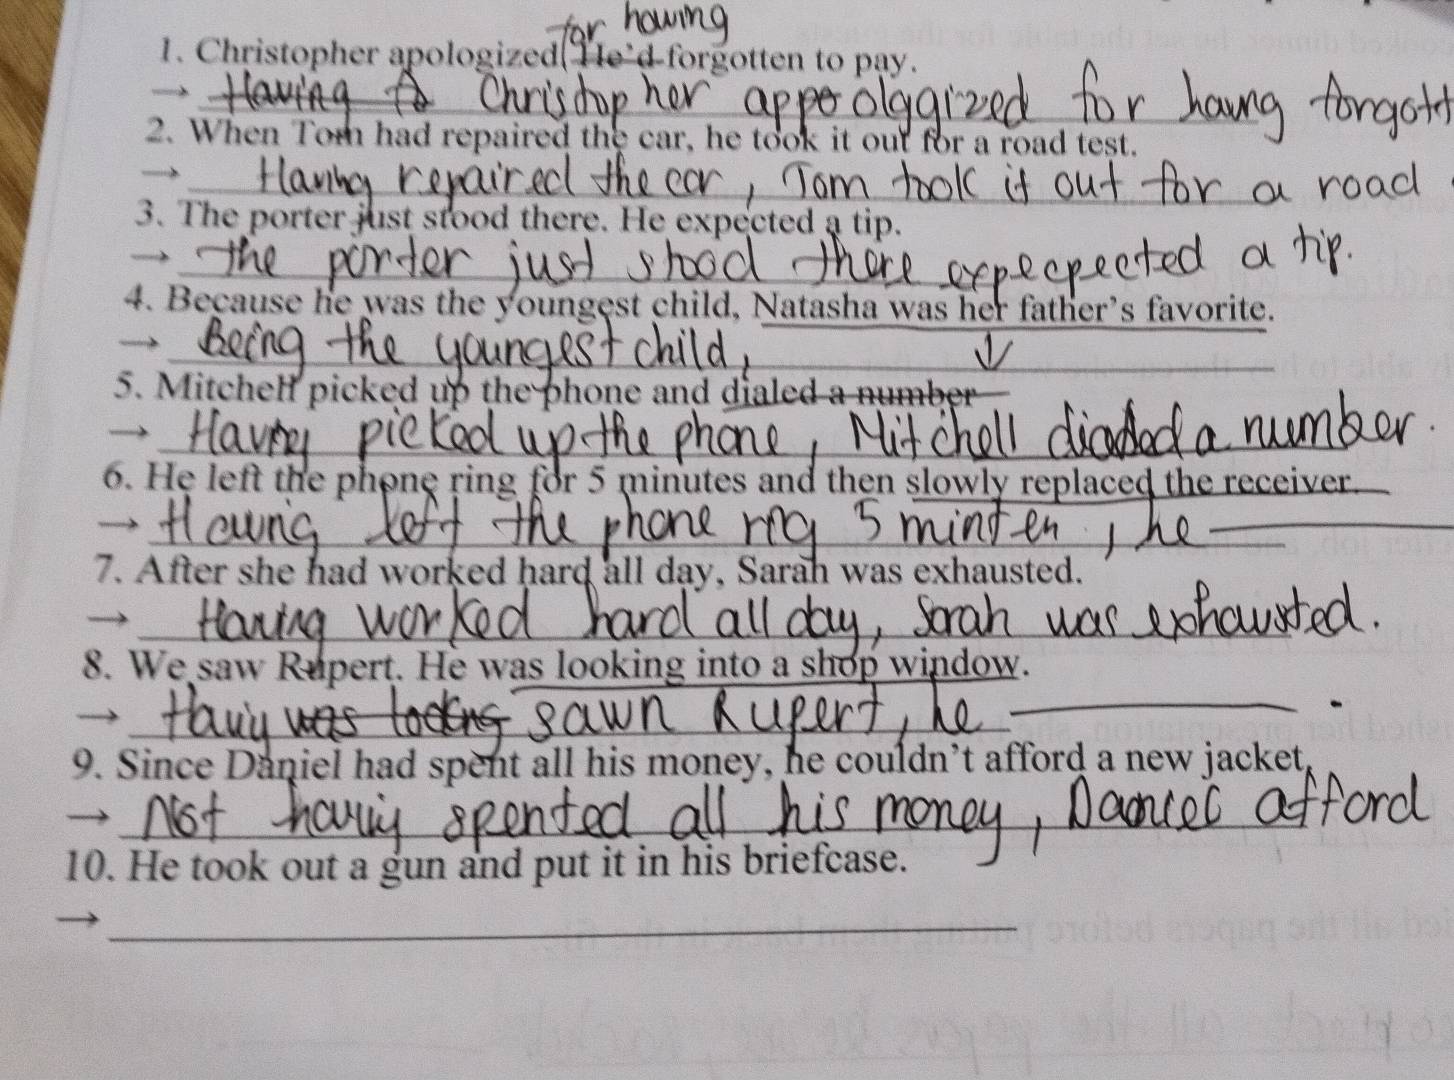 for having
1. Christopher apologized. He'd forgotten to pay.
→ Having to Christopher appeolggized for having forgott
2. When Tom had repaired the car, he took it out for a road test.
→ Having repaired the car, Tom took it out for a road
3. The porter just stood there. He expected a tip.
→ The porter just stood there expecpected a tip.
4. Because he was the youngest child, Natasha was her father's favorite.
→ Being the youngest child,
5. Mitchell picked up the phone and dialed a number
→ Having picked up the phone, Mitchell diaded a number.
6. He left the phone ring for 5 minutes and then slowly replaced the receiver.
→ Having left the phone ring 5 minten, he
7. After she had worked hard all day, Sarah was exhausted.
→ Having worked hard all day, Sarah was exhausted.
8. We saw Rupert. He was looking into a shop window.
→ Having was looking sawn Rupert, he
9. Since Daniel had spent all his money, he couldn't afford a new jacket.
→ Not having spented all his money, Daniel afford
10. He took out a gun and put it in his briefcase.
→